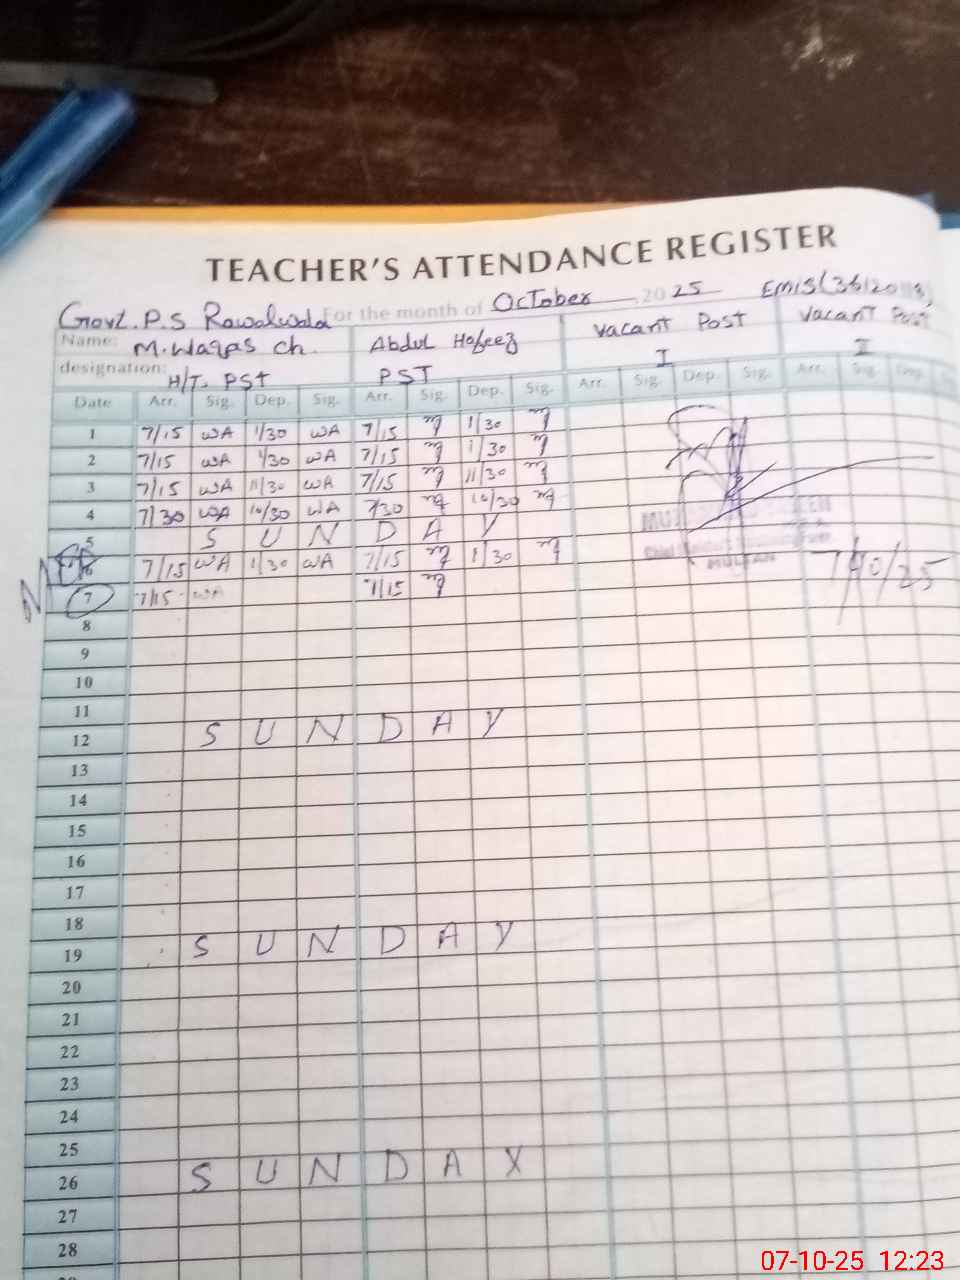 TEACHER'S ATTENDANCE REGISTER
Govt. P.S Rawalwala For the month of October 2025 Emis(
Name: M. Waqas Ch. Abdul Hafeez Vacant Post Vacant Post
designation: H/T. PST PST I II
Date Arr. Sig. Dep. Sig. Arr. Sig. Dep. Sig. Arr. Sig. Dep. Sig. Arr. Sig. Dep.
1 7/15 WA 1/30 WA 7/15 1/30
2 7/15 WA 1/30 WA 7/15 1/30
3 7/15 WA 11/30 WA 7/15 11/30
4 7/30 WA 10/30 WA 7/30 10/30
5 S U N D A Y
6 7/15 WA 1/30 WA 7/15 1/30
7 7/15 WA 7/15
MULTAN
7/10/25
8
9
10
11
12 S U N D A Y
13
14
15
16
17
18
19 S U N D A Y
20
21
22
23
24
25
26 S U N D A Y
27
28
07-10-25 12:23